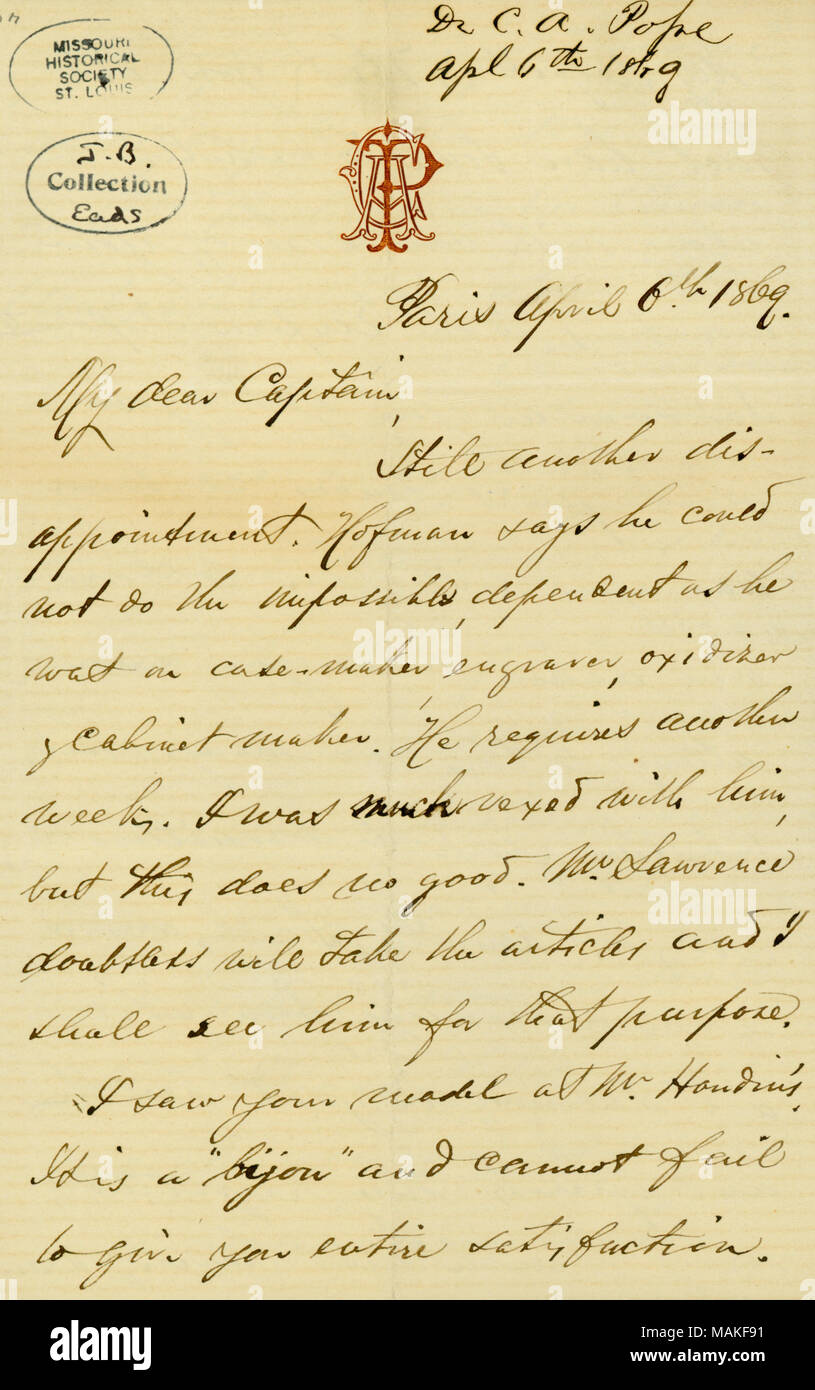 MISSOURI
HISTORICAL
SOCIETY
ST. LOUIS
J. B.
Collection
Eads
Dr C. A. Pope
Apl 6th 1869
CAP
Paris April 6th 1869.
My dear Captain,
Still another dis-
appointment. Hofman says he could
not do the impossible, dependent as he
was on case-maker, engraver, oxidizer
& cabinet maker. He requires another
week. I was much vexed with him,
but this does no good. Mr. Lawrence
doubtless will take the articles and I
shall see him for that purpose.
I saw your model at Mr. Houdin's.
It is a "bijou" and cannot fail
to give you entire satisfaction.
alamy
Image ID: MAKF91
www.alamy.com